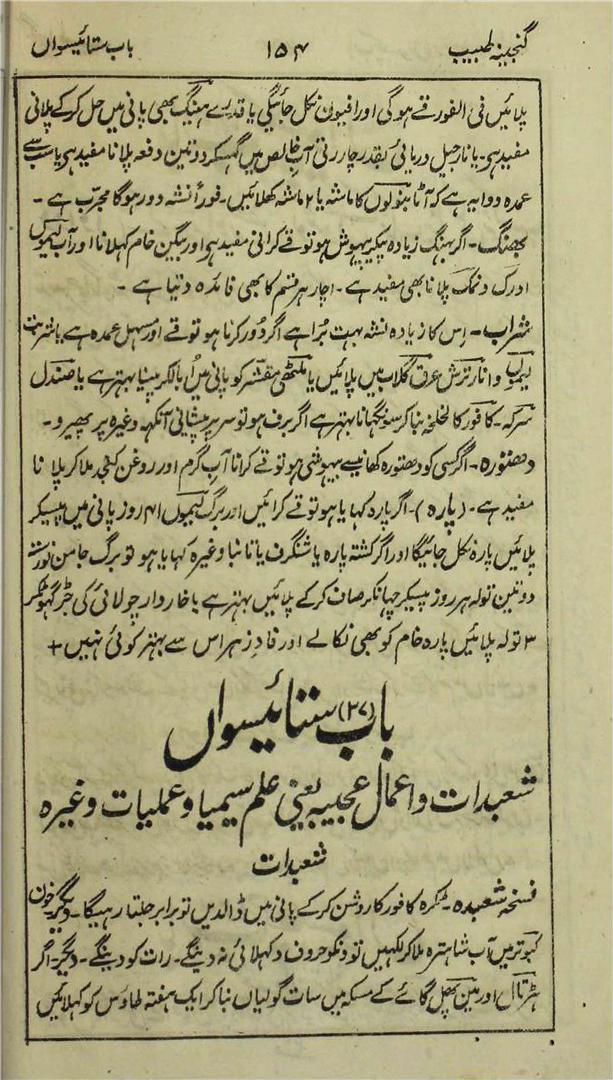 گنجینہ طبیب ۱۵۴ باب ستائیسواں
پلائیں فی الفور قے ہوگی اور افیون نکل جائیگی یا قدرے ہینگ بھی پانی میں حل کر کے پلانی
مفید ہی۔ یا نارجیل دریائی بقدر چار رتی آب خالص میں گھسکر دو تین دفعہ پلانا مفید ہی یا سب سے
عمدہ دوا یہ ہے کہ آٹا بنولوں کا ماشہ یا ۲ ماشہ کھلائیں۔ فوراً نشہ دور ہوگا مجرب ہے۔
بھنگ۔ اگر بھنگ زیادہ پیکر بیہوش ہو تو قے کرانی مفید ہی اور بیگن خام کہلانا اور آب لیموں
ادرک و نمک پلانا بھی مفید ہے۔ اچار ہر قسم کا بھی فائدہ دنیا ہے۔
شراب۔ اس کا زیادہ نشہ بہت بُرا ہے اگر دُور کرنا ہو تو قے اور مسہل عمدہ ہے یا شربت
لیموں و انار ترش عرق گلاب میں پلائیں یا ملٹھی مقشر کو پانی میں اُبالکر پینا بہتر ہے یا صندل
سرکہ۔ کافور کا لخلخہ بنا کر سونگہانا بہتر ہے اگر برف ہو تو سر پر پیشانی آنکہہ وغیرہ پر پھیرو۔
دھتورہ۔ اگر کسی کو دھتورہ کھانیسے بیہوشی ہو تو قے کرانا آب گرم اور روغن کنجد ملا کر پلانا
مفید ہے۔ (پارہ)۔ اگر پارہ کہایا ہو تو قے کرائیں اور برگ لیموں ۴۱ روز پانی میں پیسکر
پلائیں پارہ نکل جائیگا اور اگر کشتہ پارہ یا شنگرف یا تانبا وغیرہ کہایا ہو تو برگ جامن نورستہ
دو تین تولہ ہر روز پیسکر چہانکر صاف کر کے پلائیں بہتر ہے یا خاردار چولائی کی جڑ گہوٹکر
۳ تولہ پلائیں پارہ خام کو بھی نکالے اور فادزہر اس سے بہتر کوئی نہیں +
باب (۲۷) ستائیسواں
شعبدات و اعمال عجیبہ یعنی علم سیمیا و عملیات وغیرہ
شعبدات
نسخہ شعبدہ۔ ٹکرہ کافور کا روشن کر کے پانی میں ڈالدیں تو برابر جلتا رہیگا۔ دیگر۔ خون
کبوتر میں آب شاہترہ ملا کر لکہیں تو دنکو حروف دکہلائی نہ دینگے۔ رات کو دینگے۔ دیگر۔ اگر
ہڑتال اور مین پھل گائے کے مسکہ میں سات گولیاں بنا کر ایک ہفتہ طاؤس کو کہلائیں